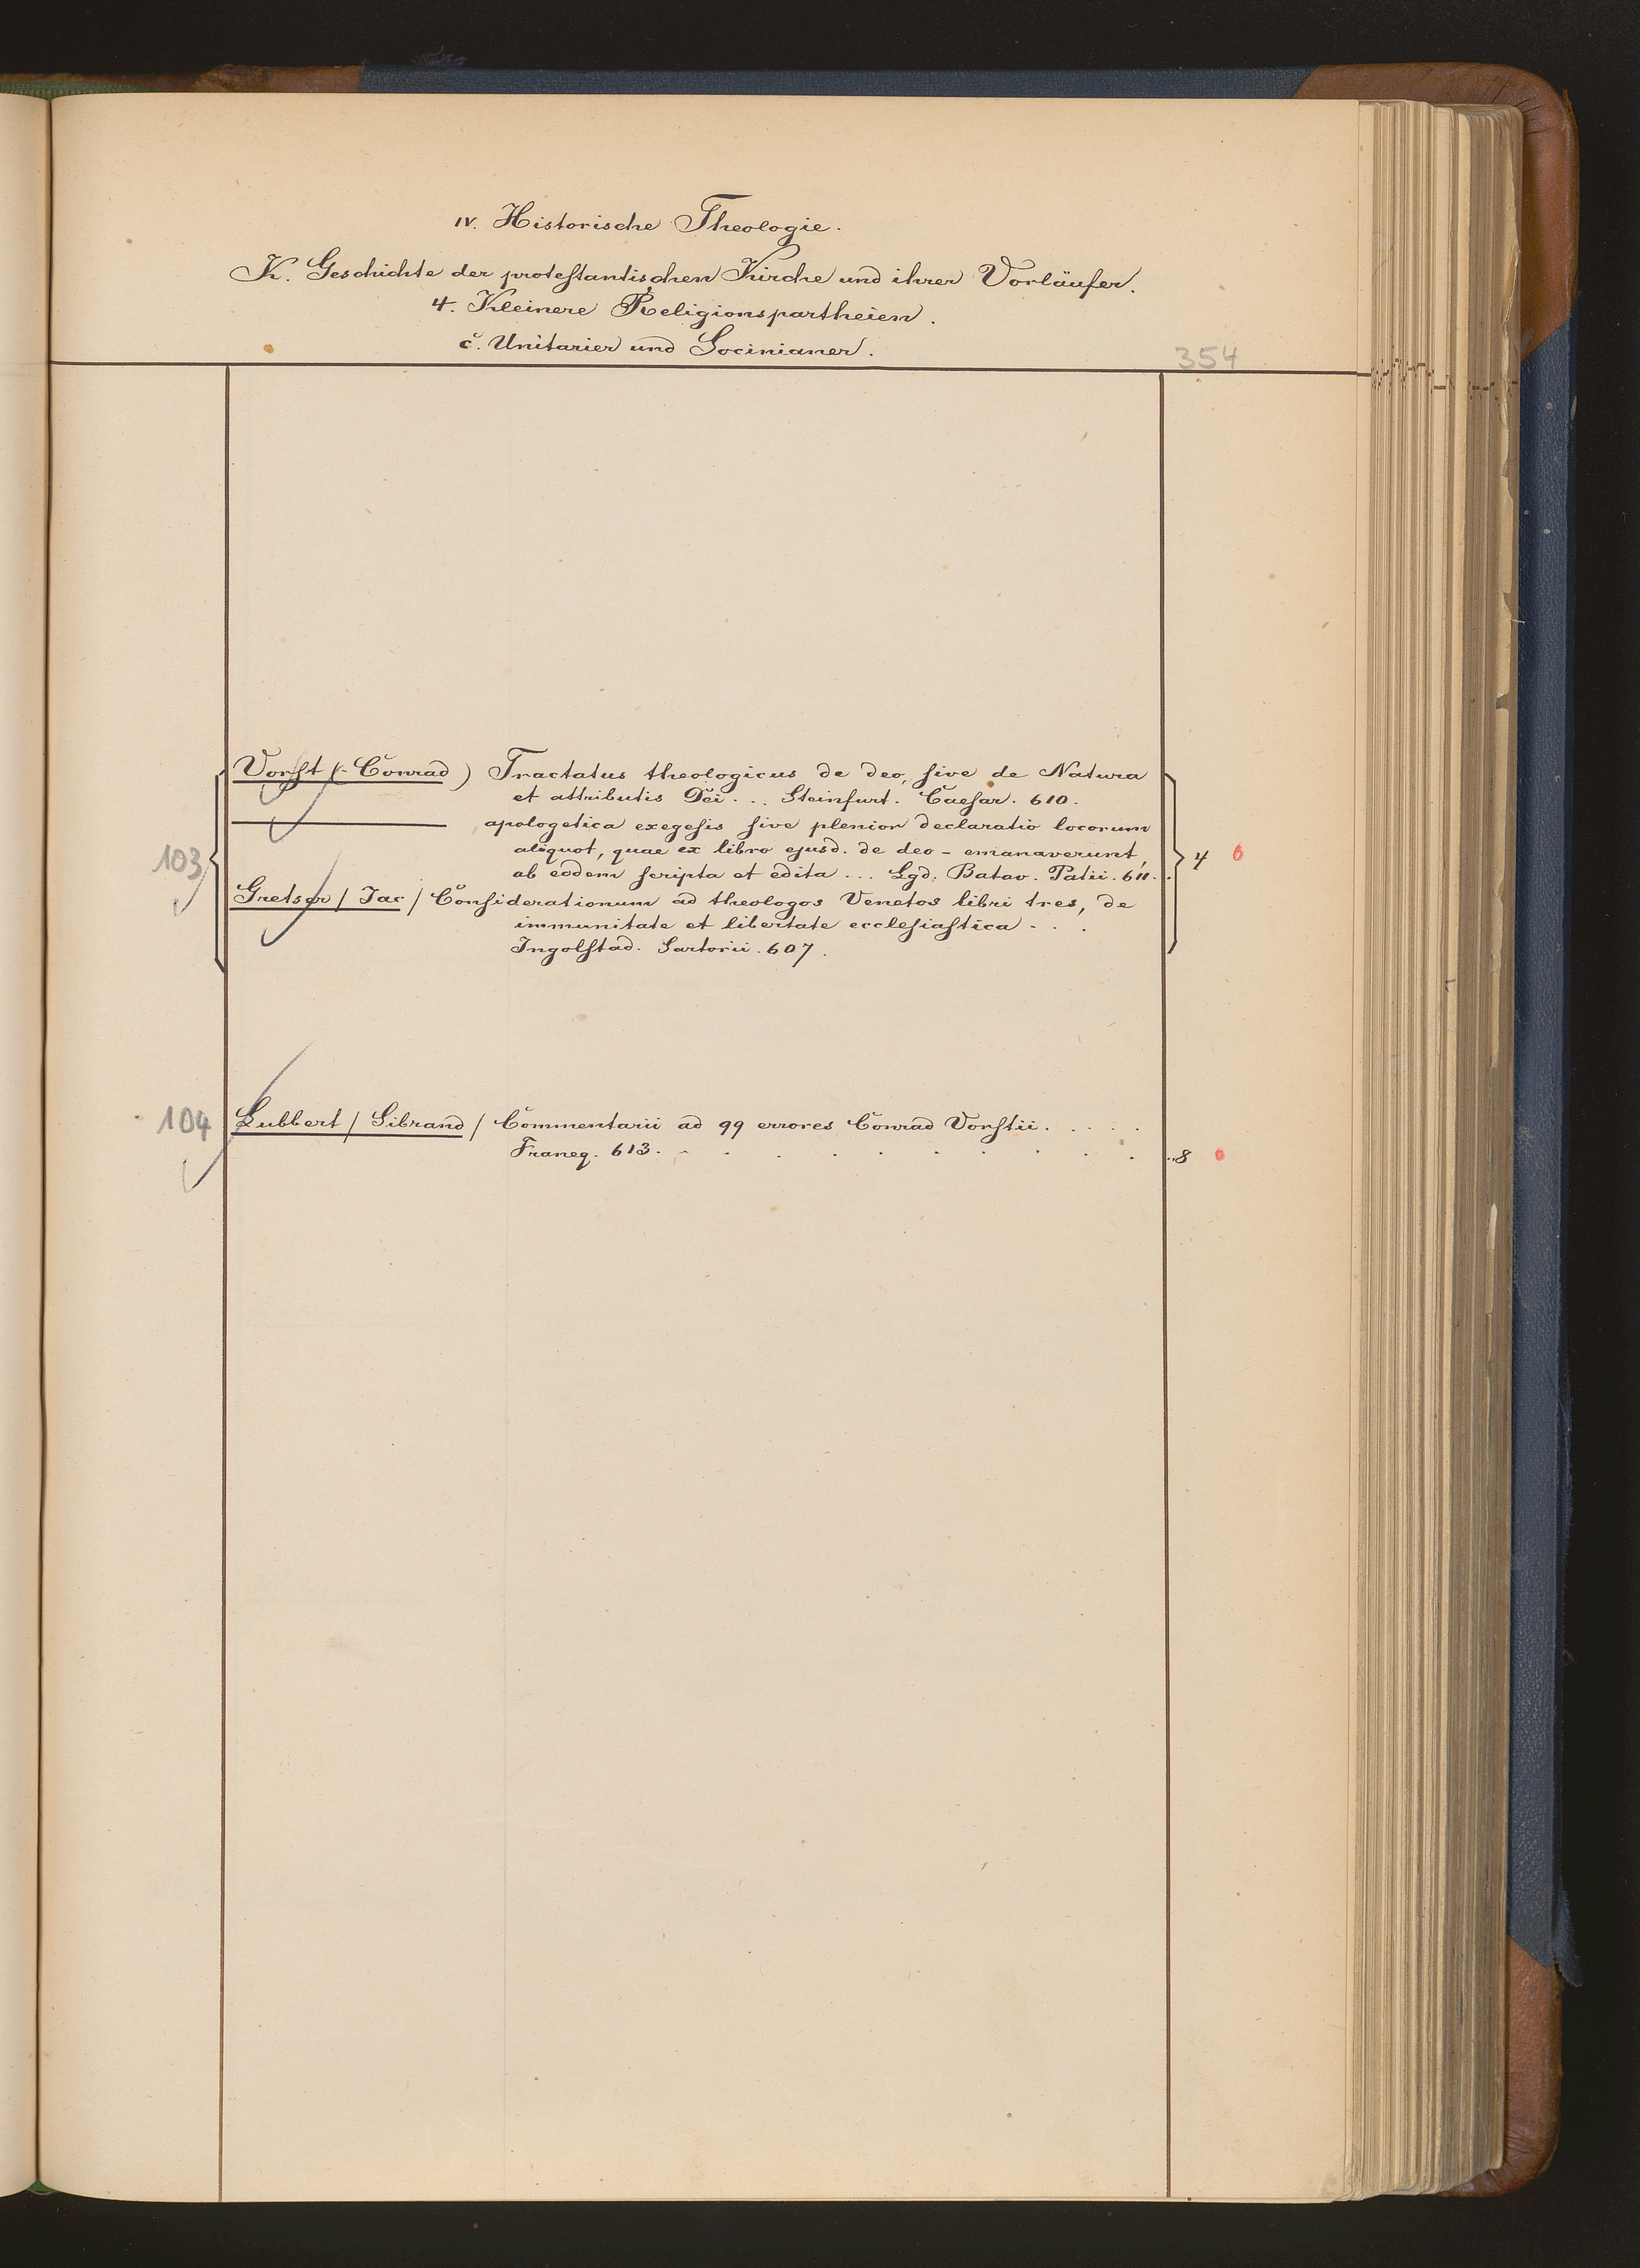 IV. Historische Theologie.
K. Geschichte der protestantischen Kirche und ihrer Vorläufer.
4. Kleinere Religionspartheien.
c. Unitarier und Socinianer.
354
Vorst (Conrad) Tractatus theologicus de deo, sive de Natura
et attributis Dei . . . Steinfurt. Caesar. 610.
apologetica exegesis sive plenior declaratio locorum
aliquot, quae ex libro ejusd. de deo - emanaverunt,
103 4 6
ab eodem scripta et edita . . . Lgd. Batav. Patii. 611.
Gretser / Jac / Considerationum ad theologos Venetos libri tres, de
immunitate et libertate ecclesiastica . . .
Ingolstad. Sartorii. 607.
104 Lubbert / Sibrand / Commentarii ad 99 errores Conrad Vorstii. . . . .
Franeq. 613. . . . . . . . . . . 8 0